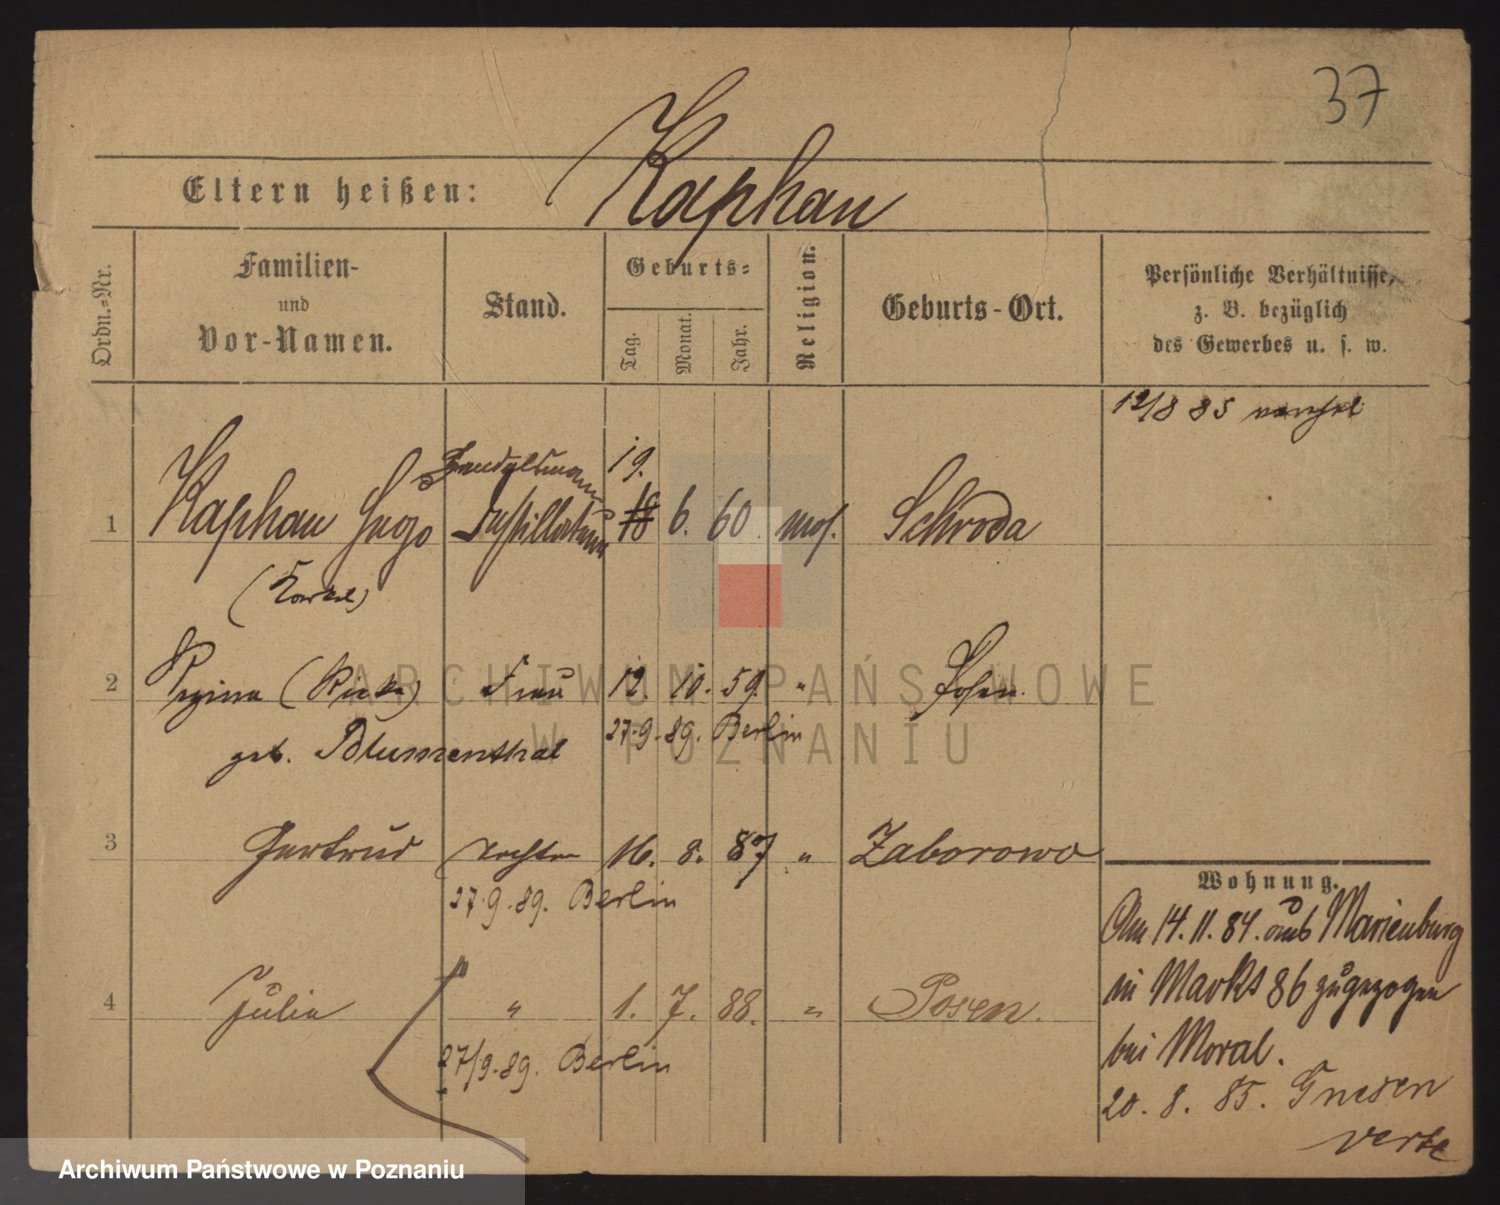 37
Eltern heißen: Kaphan
Ordn.-Nr.
Familien-
und
Vor-Namen.
Stand.
Geburts-
Tag. Monat. Jahr.
Religion.
Geburts-Ort.
Persönliche Verhältnisse,
z. B. bezüglich
des Gewerbes u. s. w.
12/8 85
Handelsmann 19.
1 Kaphan Hugo Destillateur 18 6. 60. mos. Schroda
2 Regina (Ricka) Frau 12. 10. 59. " Posen.
geb. Blumenthal 27.9.89. Berlin
3 Gertrud Tochter 16. 8. 87 " Zaborowo
27.9.89. Berlin
4 Julia " 1. 7. 88. " Posen.
27/9.89. Berlin
Wohnung.
Am 14.11.84. aus Marienburg
in Markt 86 zugezogen
bei Moral.
20. 8. 85. Gnesen
verte
ARCHIWUM PAŃSTWOWE
W POZNANIU
Archiwum Państwowe w Poznaniu